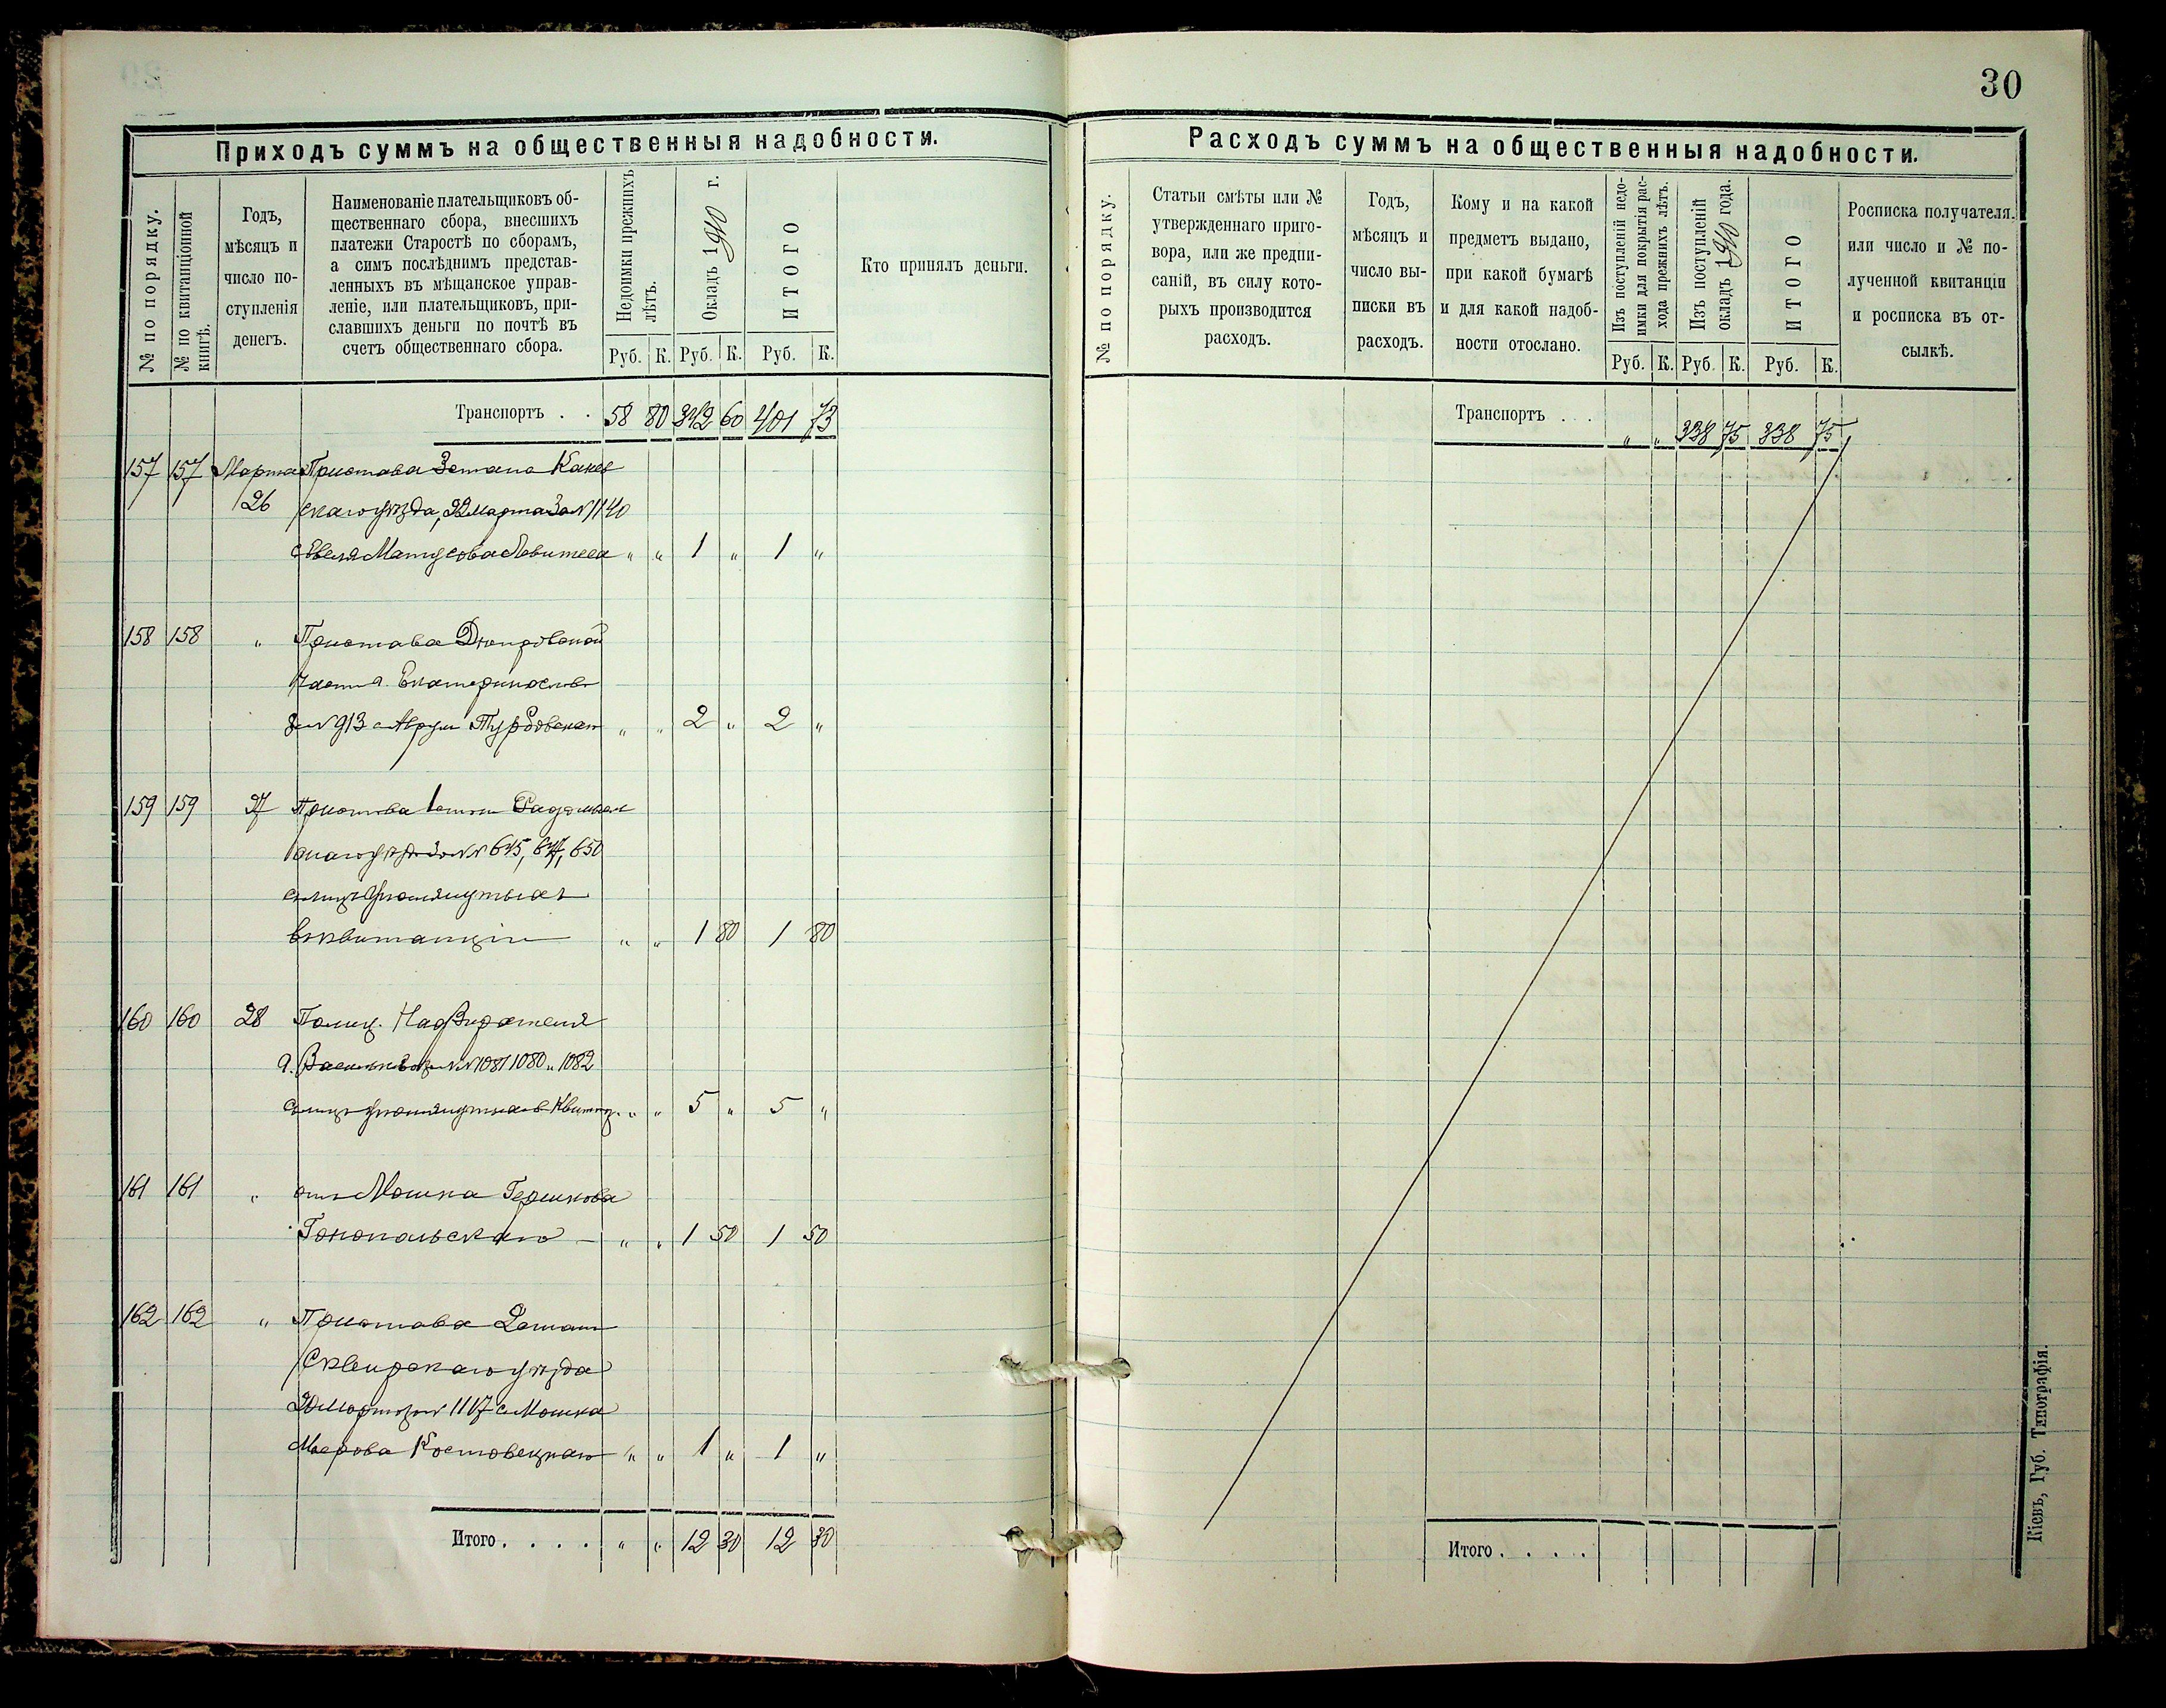 30
Приходъ суммъ на общественныя надобности.
№ по порядку.
№ по квитанціонной
книгѣ.
Годъ,
мѣсяцъ и
число по-
ступленія
денегъ.
Наименованіе плательщиковъ об-
щественнаго сбора, внесшихъ
платежи Старостѣ по сборамъ,
а симъ послѣднимъ представ-
ленныхъ въ мѣщанское управ-
леніе, или плательщиковъ, при-
славшихъ деньги по почтѣ въ
счетъ общественнаго сбора.
Недоимки прежнихъ
лѣтъ.
Окладъ 1910 г.
ИТОГО
Руб. К. Руб. К. Руб. К.
Кто принялъ деньги.
Транспортъ . . 58 80 342 60 401 73
157 157 Марта Пристава 3 стана Канев
26 скаго уѣзда, 22 марта за № 1140
с Евеля Матусова Левитеса " " 1 " 1 "
158 158 " Пристава Днепровской
части г. Екатеринослав
за № 913 с
" " 2 " 2 "
159 159 27 Пристава 1 стан Радомысл
скаго уѣзд за №№ 645, 647, 650
с лицъ упомянутыхъ
в квитанціи " " 1 80 1 80
160 160 28 Полиц. Надзирателя
г. Василькова за №№ 1081 1080 и 1082
с лицъ упомянутыхъ в квитанц. " " 5 " 5 "
161 161 " отъ Мошка Гершкова
Тонопольскаго — " " 1 50 1 50
162 162 " Пристава 2 стана
Сквирскаго уѣзда
марта за № 1117 с Мошка
Меерова Костовецкаго " " 1 " 1 "
Итого . . . . " " 12 30 12 30
Расходъ суммъ на общественныя надобности.
№ по порядку.
Статьи смѣты или №
утвержденнаго приго-
вора, или же предпи-
саній, въ силу кото-
рыхъ производится
расходъ.
Годъ,
мѣсяцъ и
число вы-
писки въ
расходъ.
Кому и на какой
предметъ выдано,
при какой бумагѣ
и для какой надоб-
ности отослано.
Изъ поступленій недо-
имки для покрытія рас-
хода прежнихъ лѣтъ.
Изъ поступленій
окладъ 1910 года.
ИТОГО
Руб. К. Руб. К. Руб. К.
Росписка получателя,
или число и № по-
лученной квитанціи
и росписка въ от-
сылкѣ.
Транспортъ . . . " " 338 75 338 75
Итого . . . .
Кіевъ, Губ. Типографія.